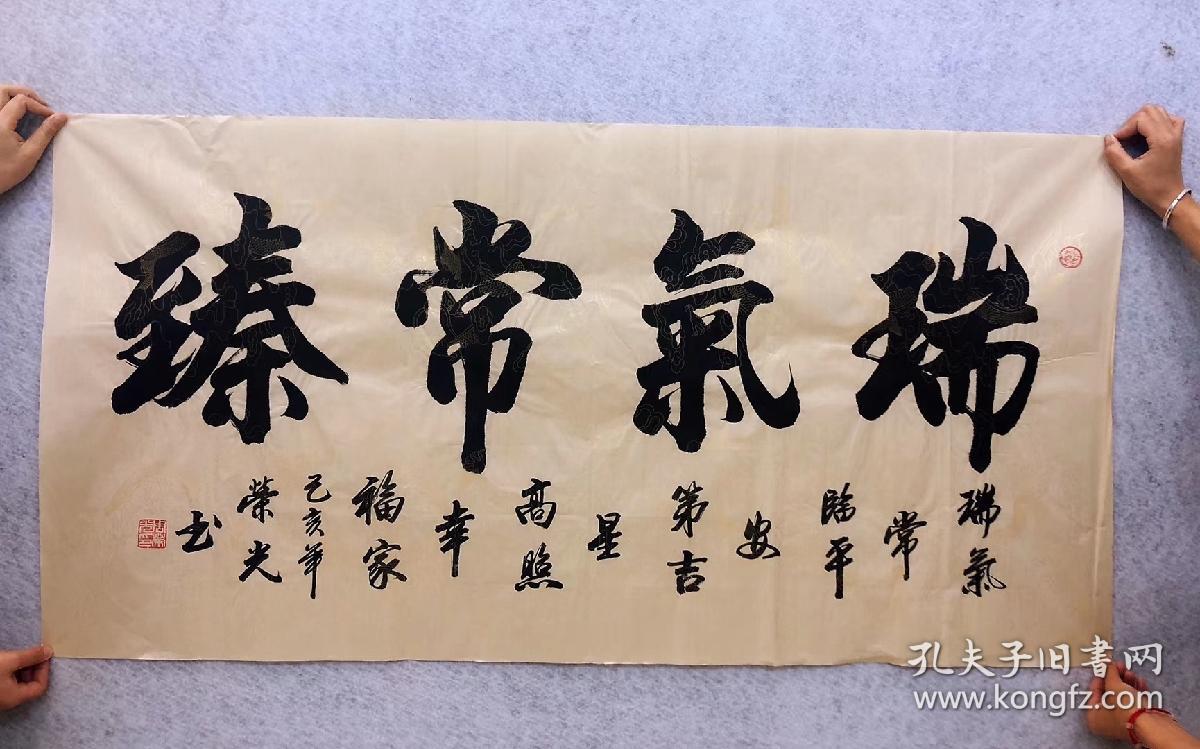 瑞氣常臻
瑞氣
常
臨平
安
第吉
星
高照
幸
福家
己亥年
榮光
书
孔夫子旧書网
www.kongfz.com